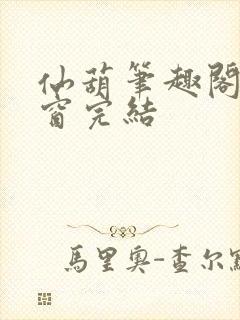 仙葫筆趣閣
窗完結
馬里奧-查尔